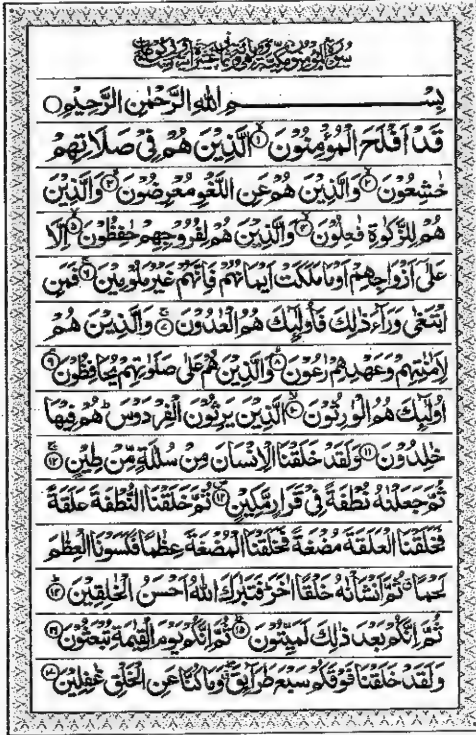 بِسْمِ اللهِ الرَّحْمٰنِ الرَّحِيْمِ
قَدْ اَفْلَحَ الْمُؤْمِنُوْنَ ۙ﴿۱﴾ الَّذِيْنَ هُمْ فِيْ صَلَاتِهِمْ
خٰشِعُوْنَ ۙ﴿۲﴾ وَالَّذِيْنَ هُمْ عَنِ اللَّغْوِ مُعْرِضُوْنَ ۙ﴿۳﴾ وَالَّذِيْنَ
هُمْ لِلزَّكٰوةِ فٰعِلُوْنَ ۙ﴿۴﴾ وَالَّذِيْنَ هُمْ لِفُرُوْجِهِمْ حٰفِظُوْنَ ۙ﴿۵﴾ اِلَّا
عَلٰۤى اَزْوَاجِهِمْ اَوْ مَا مَلَكَتْ اَيْمَانُهُمْ فَاِنَّهُمْ غَيْرُ مَلُوْمِيْنَ ۚ﴿۶﴾ فَمَنِ
ابْتَغٰى وَرَآءَ ذٰلِكَ فَاُولٰٓئِكَ هُمُ الْعٰدُوْنَ ۚ﴿۷﴾ وَالَّذِيْنَ هُمْ
لِاَمٰنٰتِهِمْ وَعَهْدِهِمْ رٰعُوْنَ ۙ﴿۸﴾ وَالَّذِيْنَ هُمْ عَلٰى صَلَوٰتِهِمْ يُحَافِظُوْنَ ۘ﴿۹﴾
اُولٰٓئِكَ هُمُ الْوٰرِثُوْنَ ۙ﴿۱۰﴾ الَّذِيْنَ يَرِثُوْنَ الْفِرْدَوْسَ ؕ هُمْ فِيْهَا
خٰلِدُوْنَ ﴿۱۱﴾ وَلَقَدْ خَلَقْنَا الْاِنْسَانَ مِنْ سُلٰلَةٍ مِّنْ طِيْنٍ ۚ﴿۱۲﴾
ثُمَّ جَعَلْنٰهُ نُطْفَةً فِيْ قَرَارٍ مَّكِيْنٍ ۪﴿۱۳﴾ ثُمَّ خَلَقْنَا النُّطْفَةَ عَلَقَةً
فَخَلَقْنَا الْعَلَقَةَ مُضْغَةً فَخَلَقْنَا الْمُضْغَةَ عِظٰمًا فَكَسَوْنَا الْعِظٰمَ
لَحْمًا ۗ ثُمَّ اَنْشَاْنٰهُ خَلْقًا اٰخَرَ ؕ فَتَبٰرَكَ اللهُ اَحْسَنُ الْخٰلِقِيْنَ ؕ﴿۱۴﴾
ثُمَّ اِنَّكُمْ بَعْدَ ذٰلِكَ لَمَيِّتُوْنَ ؕ﴿۱۵﴾ ثُمَّ اِنَّكُمْ يَوْمَ الْقِيٰمَةِ تُبْعَثُوْنَ ﴿۱۶﴾
وَلَقَدْ خَلَقْنَا فَوْقَكُمْ سَبْعَ طَرَآئِقَ ۖ وَمَا كُنَّا عَنِ الْخَلْقِ غٰفِلِيْنَ ﴿۱۷﴾